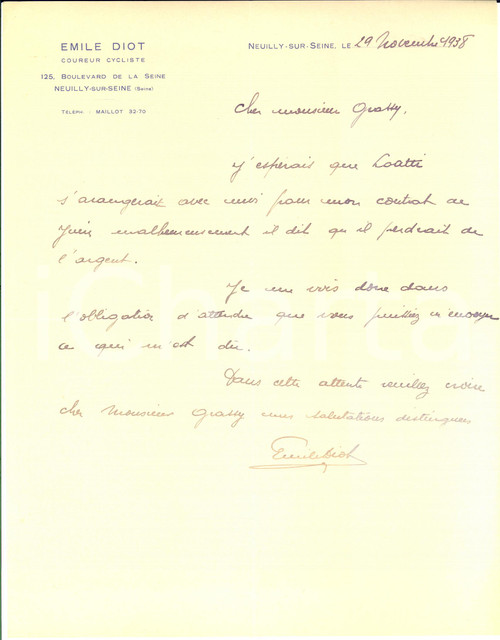 EMILE DIOT
COUREUR CYCLISTE
125, BOULEVARD DE LA SEINE
NEUILLY-SUR-SEINE (Seine)
TÉLÉPH : MAILLOT 32-70
NEUILLY-SUR-SEINE, LE 29 Novembre 1938
Cher monsieur Grassy,
J'espérais que Loatti
s'arangerait avec moi pour mon contrat de
Juin malheureusement il dit qu'il perdrait de
l'argent.
Je me vois donc dans
l'obligation d'attendre que vous puissiez m'envoyer
ce qui m'est du.
Dans cette attente veuillez croire
cher Monsieur Grassy mes salutations distinguées
Emile Diot
iCharta